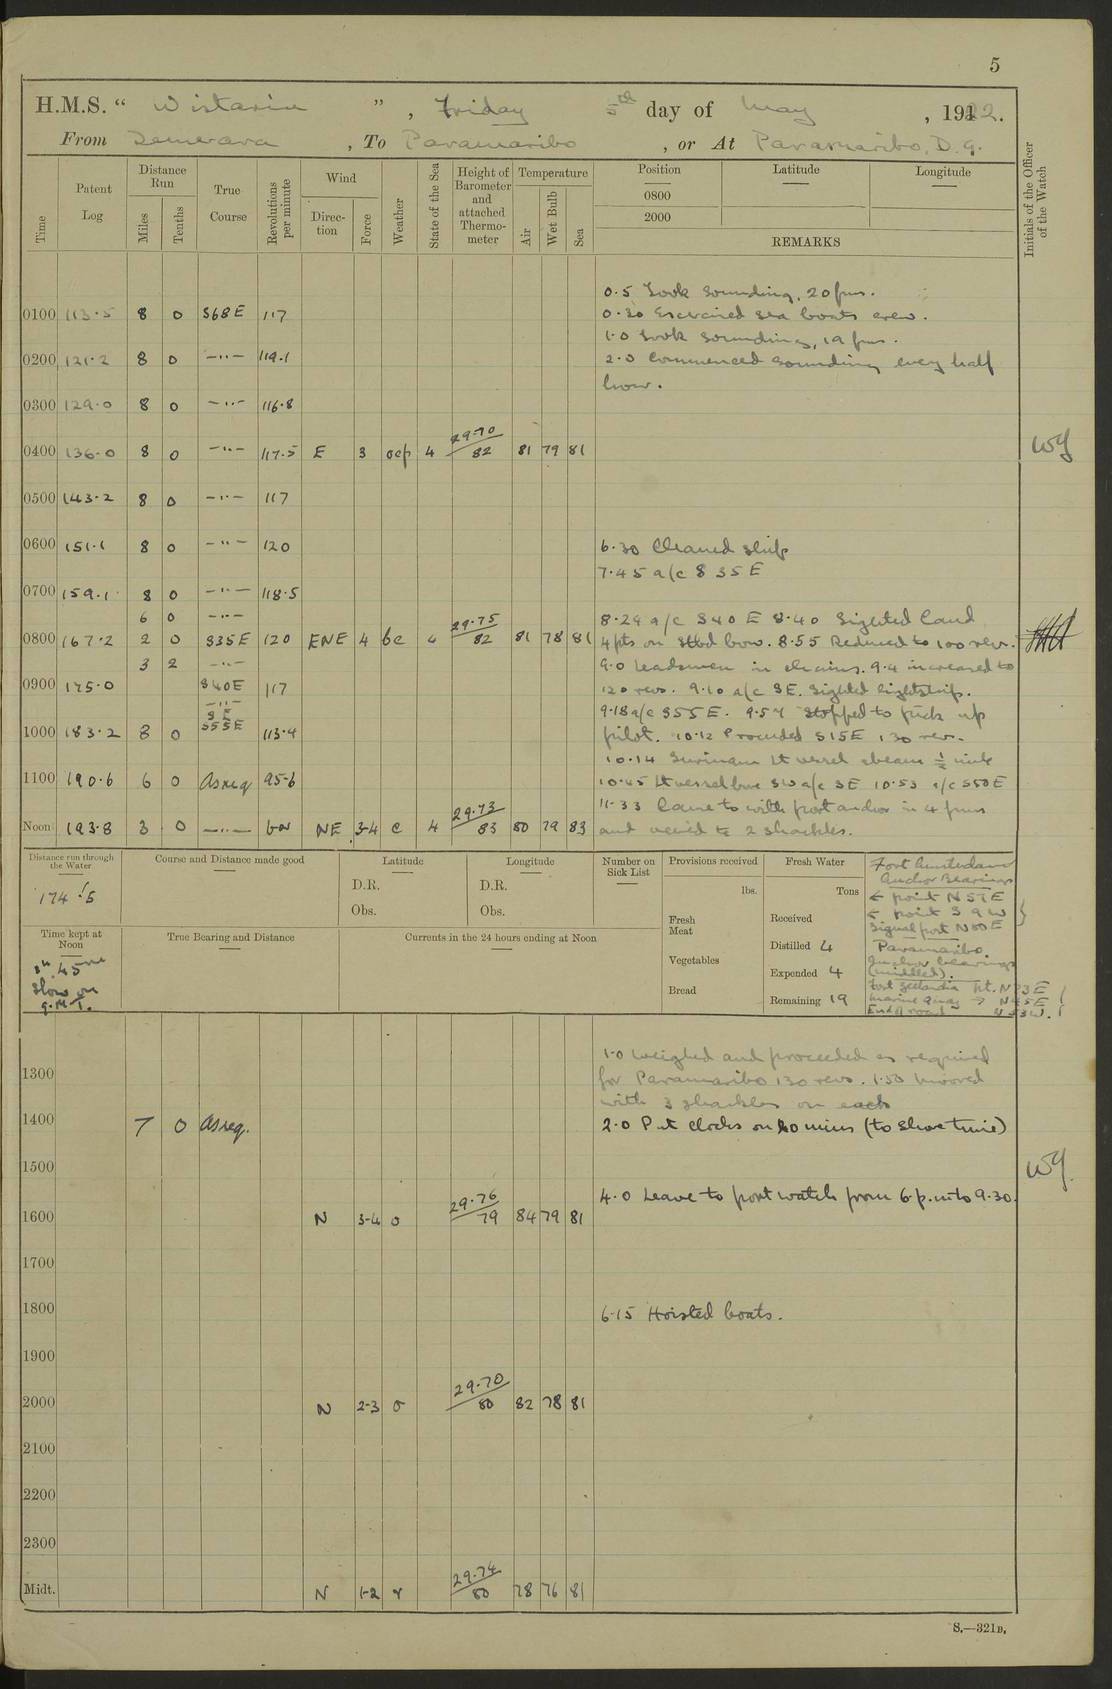 5
H.M.S. " Wistaria ", Friday 5th day of May, 1922.
From Demerara, To Paramaribo, or At Paramaribo, D.G.
Time
Patent Log
Distance Run
Miles
Tenths
True Course
Revolutions per minute
Wind
Direction
Force
Weather
State of the Sea
Height of Barometer and attached Thermometer
Temperature
Air
Wet Bulb
Sea
Position
0800
2000
Latitude
Longitude
REMARKS
Initials of the Officer of the Watch
0.5 Took sounding, 20 fms.
0100 113.5 8 0 S68E 117 0.30 Exercised sea boats crew.
1.0 Took sounding, 19 fms.
0200 121.2 8 0 —"— 119.1 2.0 Commenced sounding every half
hour.
0300 129.0 8 0 —"— 116.8
0400 136.0 8 0 —"— 117.5 E 3 ocp 4 29.70/82 81 79 81 WJ
0500 143.2 8 0 —"— 117
0600 151.1 8 0 —"— 120 6.30 Cleaned ship
7.45 a/c S 35 E
0700 159.1 8 0 —"— 118.5
6 0 —"— 8.29 a/c S40E 8.40 Sighted land
0800 167.2 2 0 S35E 120 ENE 4 bc 4 29.75/82 81 78 81 4 pts on stbd bow. 8.55 Reduced to 100 revs.
3 2 —"— 9.0 Leadsmen in chains. 9.4 increased to
0900 175.0 S40E 117 120 revs. 9.10 a/c SE. Sighted lightship.
—"—
SE 9.18 a/c S55E. 9.57 Stopped to pick up
1000 183.2 8 0 S55E 113.4 pilot. 10.12 Proceeded S15E 130 revs.
10.14 Surinam Lt vessel abeam ½ mile
1100 190.6 6 0 As req 95.6 10.45 Lt vessel bore SW a/c SE 10.53 a/c S50E
11.33 Came to with port anchor in 4 fms
Noon 193.8 3 0 —"— NE 3-4 c 4 29.73/83 80 79 83 and veered to 2 shackles.
Distance run through the Water
174.5
Course and Distance made good
Latitude
D.R.
Obs.
Longitude
D.R.
Obs.
Number on Sick List
Provisions received
lbs.
Fresh Meat
Vegetables
Bread
Fresh Water
Tons
Received
Distilled 4
Expended 4
Remaining 19
Fort Amsterdam
Anchor Bearings
← point N57E
← point S 9 W
Signal port N80E
Paramaribo.
Anchor bearings
(middled).
Fort Zeelandia
Marine quay → N45E
End of road
Time kept at Noon
3h 45m
slow on
G.M.T.
True Bearing and Distance
Currents in the 24 hours ending at Noon
1.0 Weighed and proceeded as required
1300 for Paramaribo 130 revs. 1.50 Moored
with 3 shackles on each
1400 7 0 As req. 2.0 Put clocks on mins (to shore time)
1500 WJ
4.0 Leave to port watch from 6 p.m to 9.30.
1600 N 3-4 o 29.76/79 84 79 81
1700
1800 6.15 Hoisted boats.
1900
2000 N 2-3 o 29.70/80 82 78 81
2100
2200
2300
Midt. N 1-2 r 29.74/80 78 76 81
S.—321B.